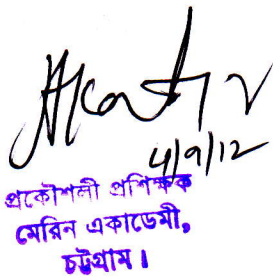 4/9/12
প্রকৌশলী প্রশিক্ষক
মেরিন একাডেমী,
চট্টগ্রাম।